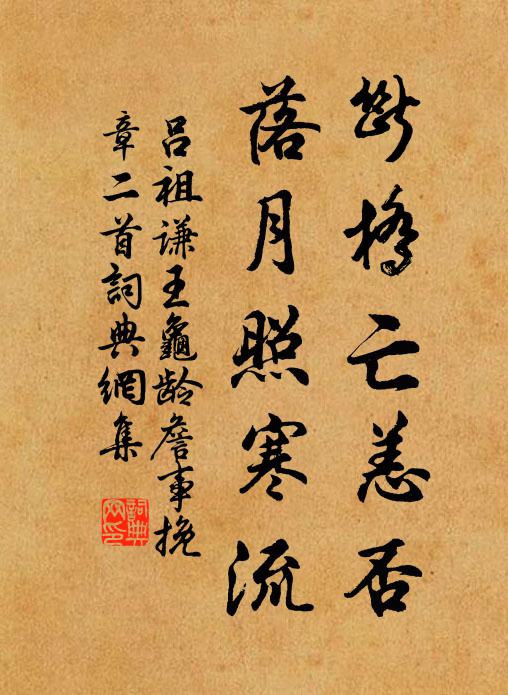 斷橋亡恙否
落月照寒流
吕祖谦王龜龄詹事挽
章二首詞典網集
詞典網印